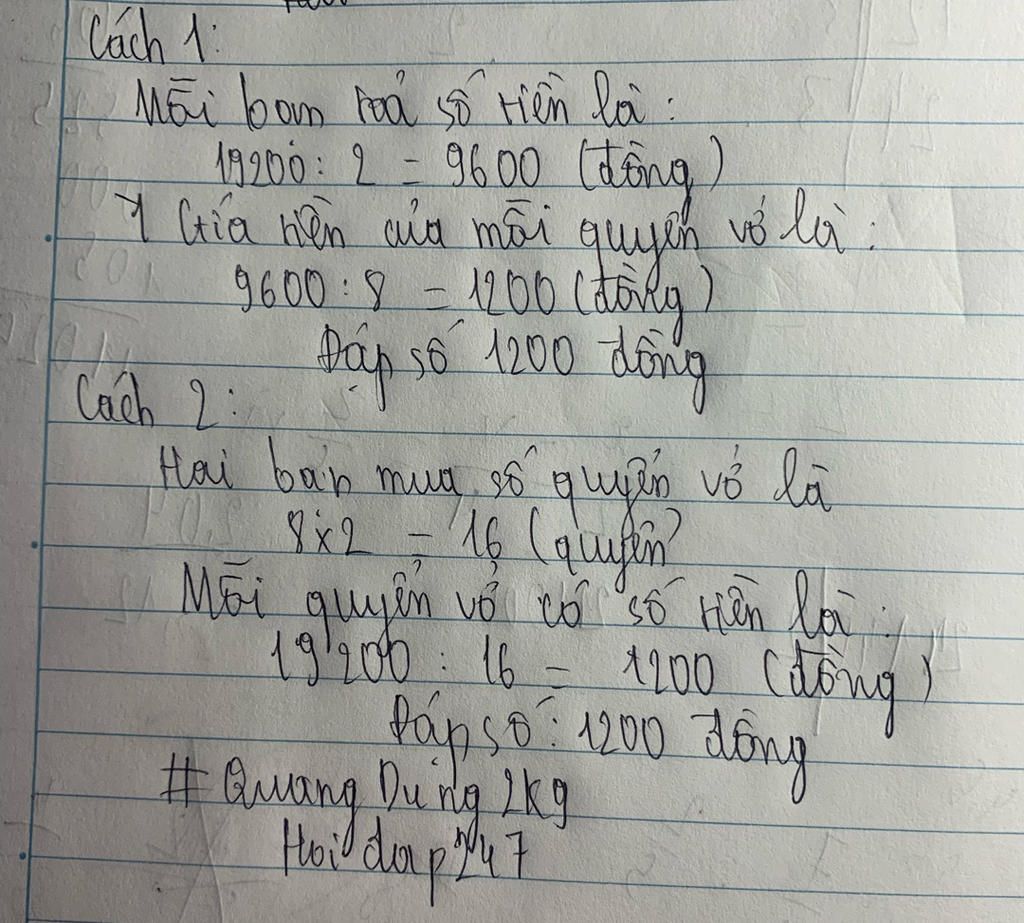 Cách 1:
Mỗi bạn trả số tiền là:
19200 : 2 = 9600 (đồng)
Giá tiền của mỗi quyển vở là:
9600 : 8 = 1200 (đồng)
Đáp số 1200 đồng
Cách 2:
Hai bạn mua số quyển vở là
8 x 2 = 16 (quyển)
Mỗi quyển vở có số tiền là:
19200 : 16 = 1200 (đồng)
Đáp số: 1200 đồng
# Quang Dũng 2kg
Hoidap247